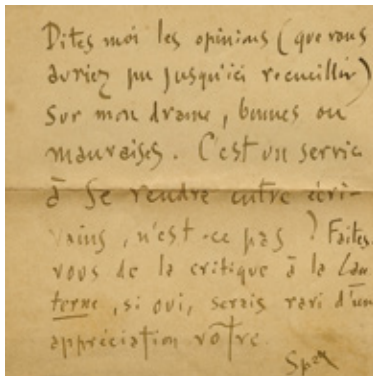 Dites moi les opinions (que vous
auriez pu jusqu'ici recueillir)
sur mon drame, bonnes ou
mauvaises. C'est un service
à se rendre entre écri-
vains, n'est-ce pas ? Faites
vous de la critique à la Lan
terne, si oui, serais ravi d'un
appréciation vôtre.